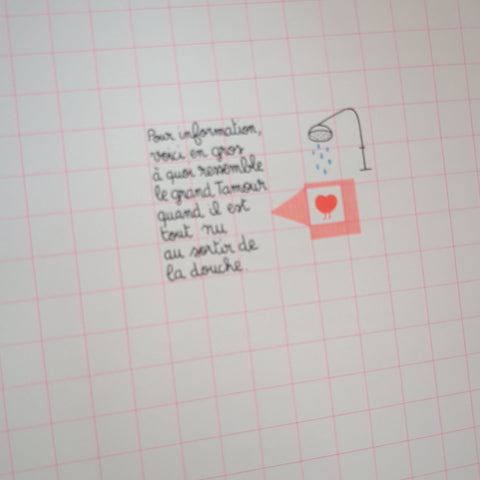 Pour information,
voici en gros
à quoi ressemble
le grand Tamour
quand il est
tout nu
au sortir de
la douche.